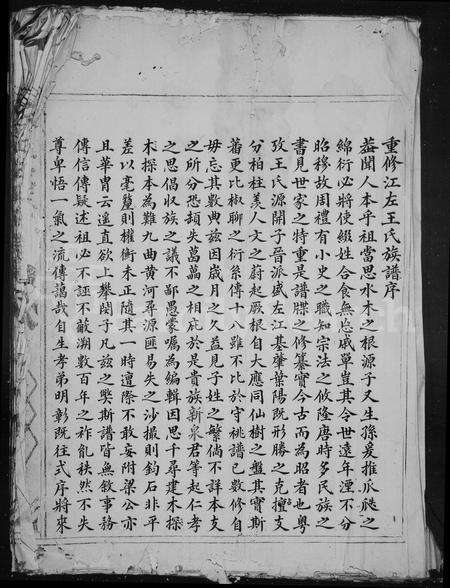 重修江左王氏族譜序
蓋聞人本乎祖當思水木之根源子又生孫爰推瓜瓞之
綿衍必將使綴姓合食無忘戚單豈其令世遠年湮不分
昭穆故周禮有小史之職知宗法之攸隆唐時多氏族之
書見世家之特重是譜牒之修纂實今古而為昭者也粵
攷王氏源開子晉派盛左江基肇葉陽既形勝之克擅支
分柏柱美人文之蔚起厥根自大應同仙樹之盤其實斯
蕃更比椒聊之衍系傳十八雖不比於守祧譜已數修自
毋忘其數典茲因歲月之久益見子姓之繁倘不詳本支
之所分恐頓失葛藟之相庇於是貴族新泉君等起仁孝
之思倡收族之議不鄙愚蒙囑為編輯因思千尋建木探
木探本為難九曲黃河尋源匪易失之沙撮則鈞石非平
差以毫釐則權衡未正隨其一時遭際不敢妄附梁公亦
且華胄云遙直欲上攀閔子凡茲之槩斯譜皆無敘事務
傳信傳疑述祖必不誣不敵溯數百年之祚胤秩然不失
尊卑悟一氣之流傳藹哉自生孝弟明彰既往式序將來